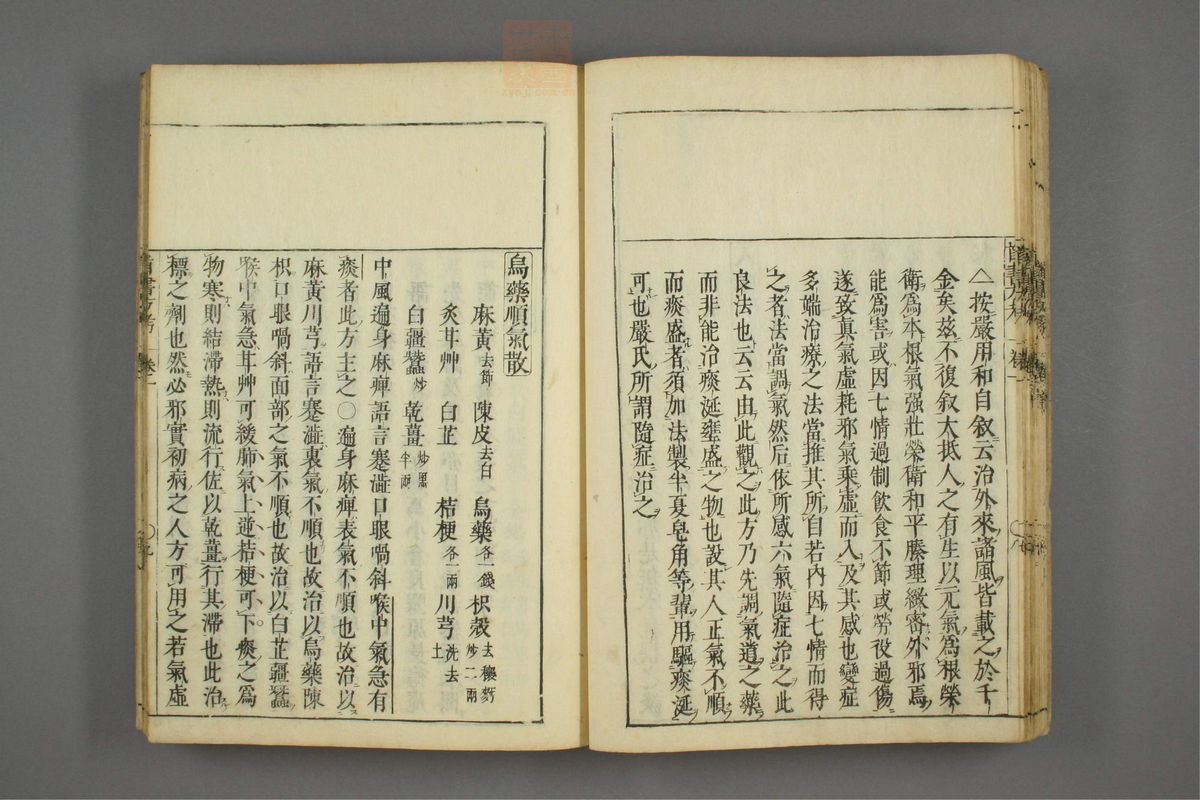 △按嚴用和自敘云治外來諸風皆載之於千
金矣茲不復敘大抵人之有生以元氣爲根榮
衛爲本根氣强壯榮衛和平腠理緻密外邪焉
能爲害或因七情過制飲食不節或勞役過傷
遂致眞氣虛耗邪氣乘虛而入及其感也變症
多端治療之法當推其所自若內因七情而得
之者法當調氣然后依所感六氣隨症治之此
良法也云云由此觀之此方乃先調氣道之藥
而非能治痰涎壅盛之物也設其人正氣不順
而痰盛者須加法製半夏皂角等輩用驅痰涎
可也嚴氏所謂隨症治之
烏藥順氣散
麻黃去節 陳皮去白 烏藥各一錢 枳殼去穰麩炒二兩
炙甘艸 白芷 桔梗各一兩 川芎洗去土
白殭蠶炒 乾薑炒黑半兩
中風遍身麻痺語言蹇澁口眼喎斜喉中氣急有
痰者此方主之〇遍身麻痺表氣不順也故治以
麻黃川芎語言蹇澁裏氣不順也故治以烏藥陳
枳口眼喎斜面部之氣不順也故治以白芷殭蠶
喉中氣急甘艸可緩肺氣上逆桔梗可下痰之爲
物寒則結滯熱則流行佐以乾薑行其滯也此治
標之劑也然必邪實初病之人方可用之若氣虛